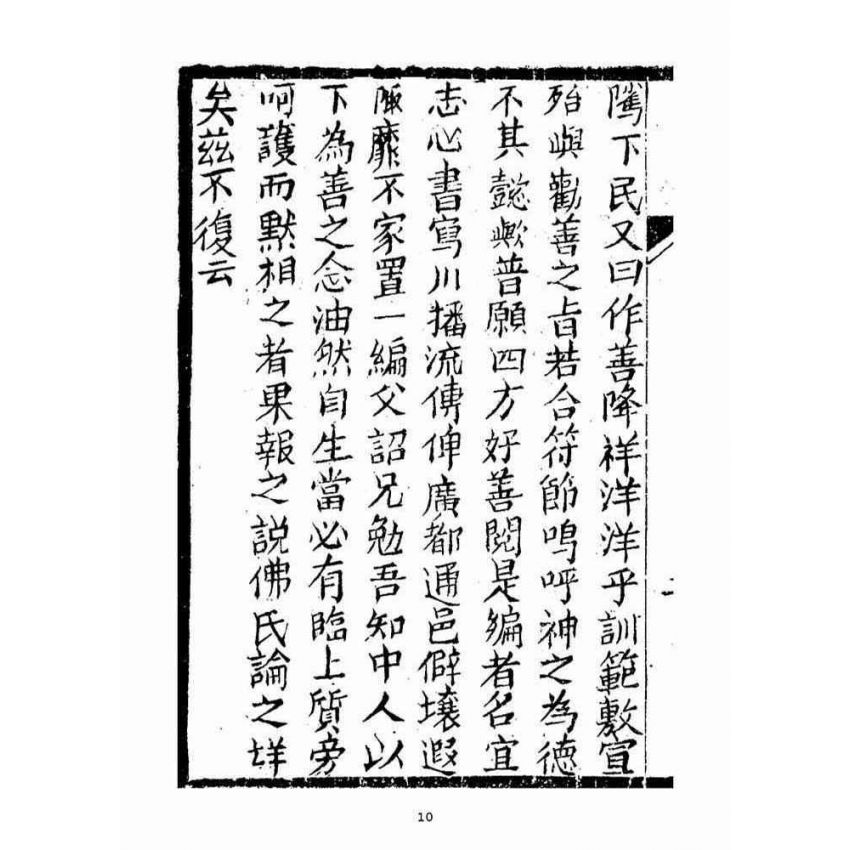 隲下民又曰作善降祥洋洋乎訓範敷宣
殆與勸善之旨若合符節嗚呼神之為德
不其懿歟普願四方好善閱是編者各宜
志心書寫川播流傳俾廣都通邑僻壤遐
陬靡不家置一編父詔兄勉吾知中人以
下為善之念油然自生當必有臨上質旁
呵護而默相之者果報之説佛氏論之詳
矣茲不復云
10